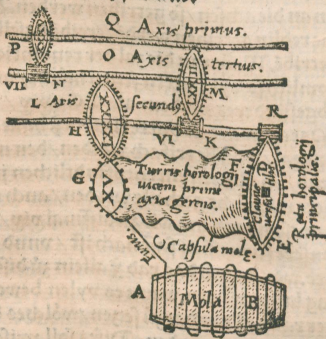 Q Axis primus.
P
O Axis tertius.
VII N
L Axis secundus
M
H
VI K
R
E
XV
Turris horologij
vicem primi
axis gerens.
F D
Rota horologij
principalis.
Funis.
C Capsula molę.
A Mola B